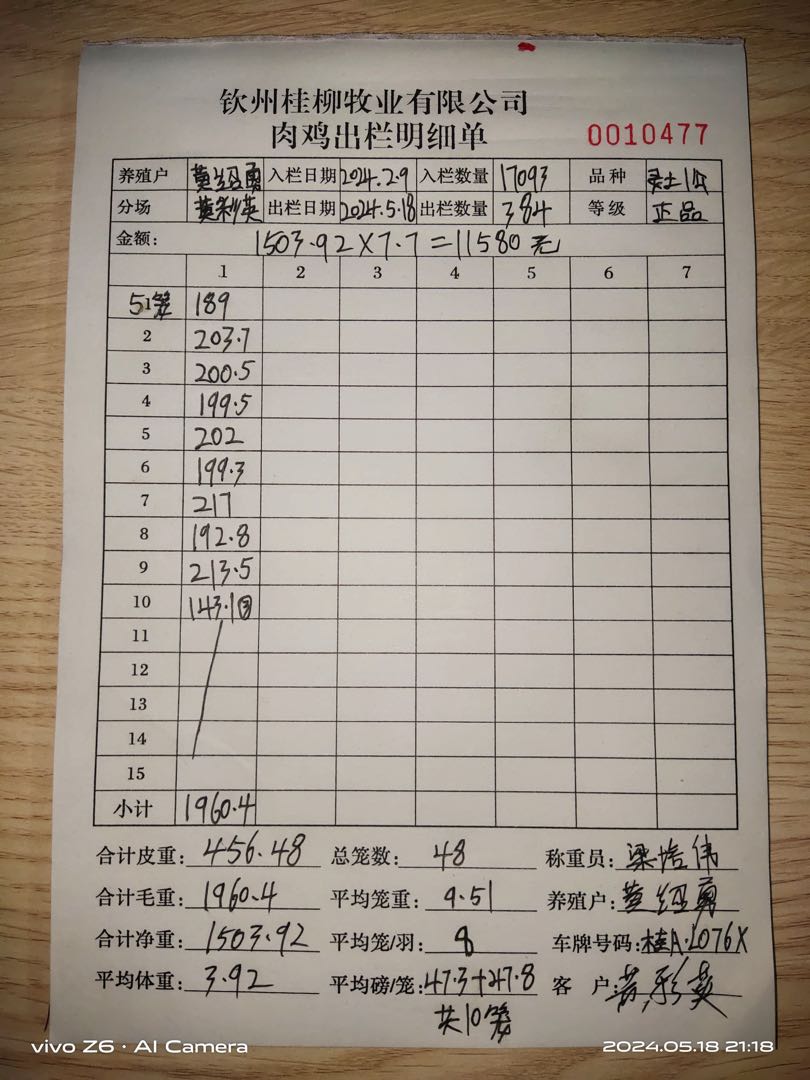 钦州桂柳牧业有限公司
肉鸡出栏明细单 0010477
养殖户 黄绍勇 入栏日期 2024.2.9 入栏数量 17093 品种
分场 出栏日期 2024.5.18 出栏数量 384 等级 正品
金额: 1503.92×7.7=11580元
1 2 3 4 5 6 7
5笼 1 189
2 203.7
3 200.5
4 199.5
5 202
6 199.3
7 217
8 192.8
9 213.5
10 143.1③
11
12
13
14
15
小计 1960.4
合计皮重: 456.48 总笼数: 48 称重员: 梁培伟
合计毛重: 1960.4 平均笼重: 9.51 养殖户: 黄绍勇
合计净重: 1503.92 平均笼/羽: 8 车牌号码: 桂A·L076X
平均体重: 3.92 平均磅/笼: 47.3+47.8 客户:
共10笼
vivo Z6 · AI Camera 2024.05.18 21:18